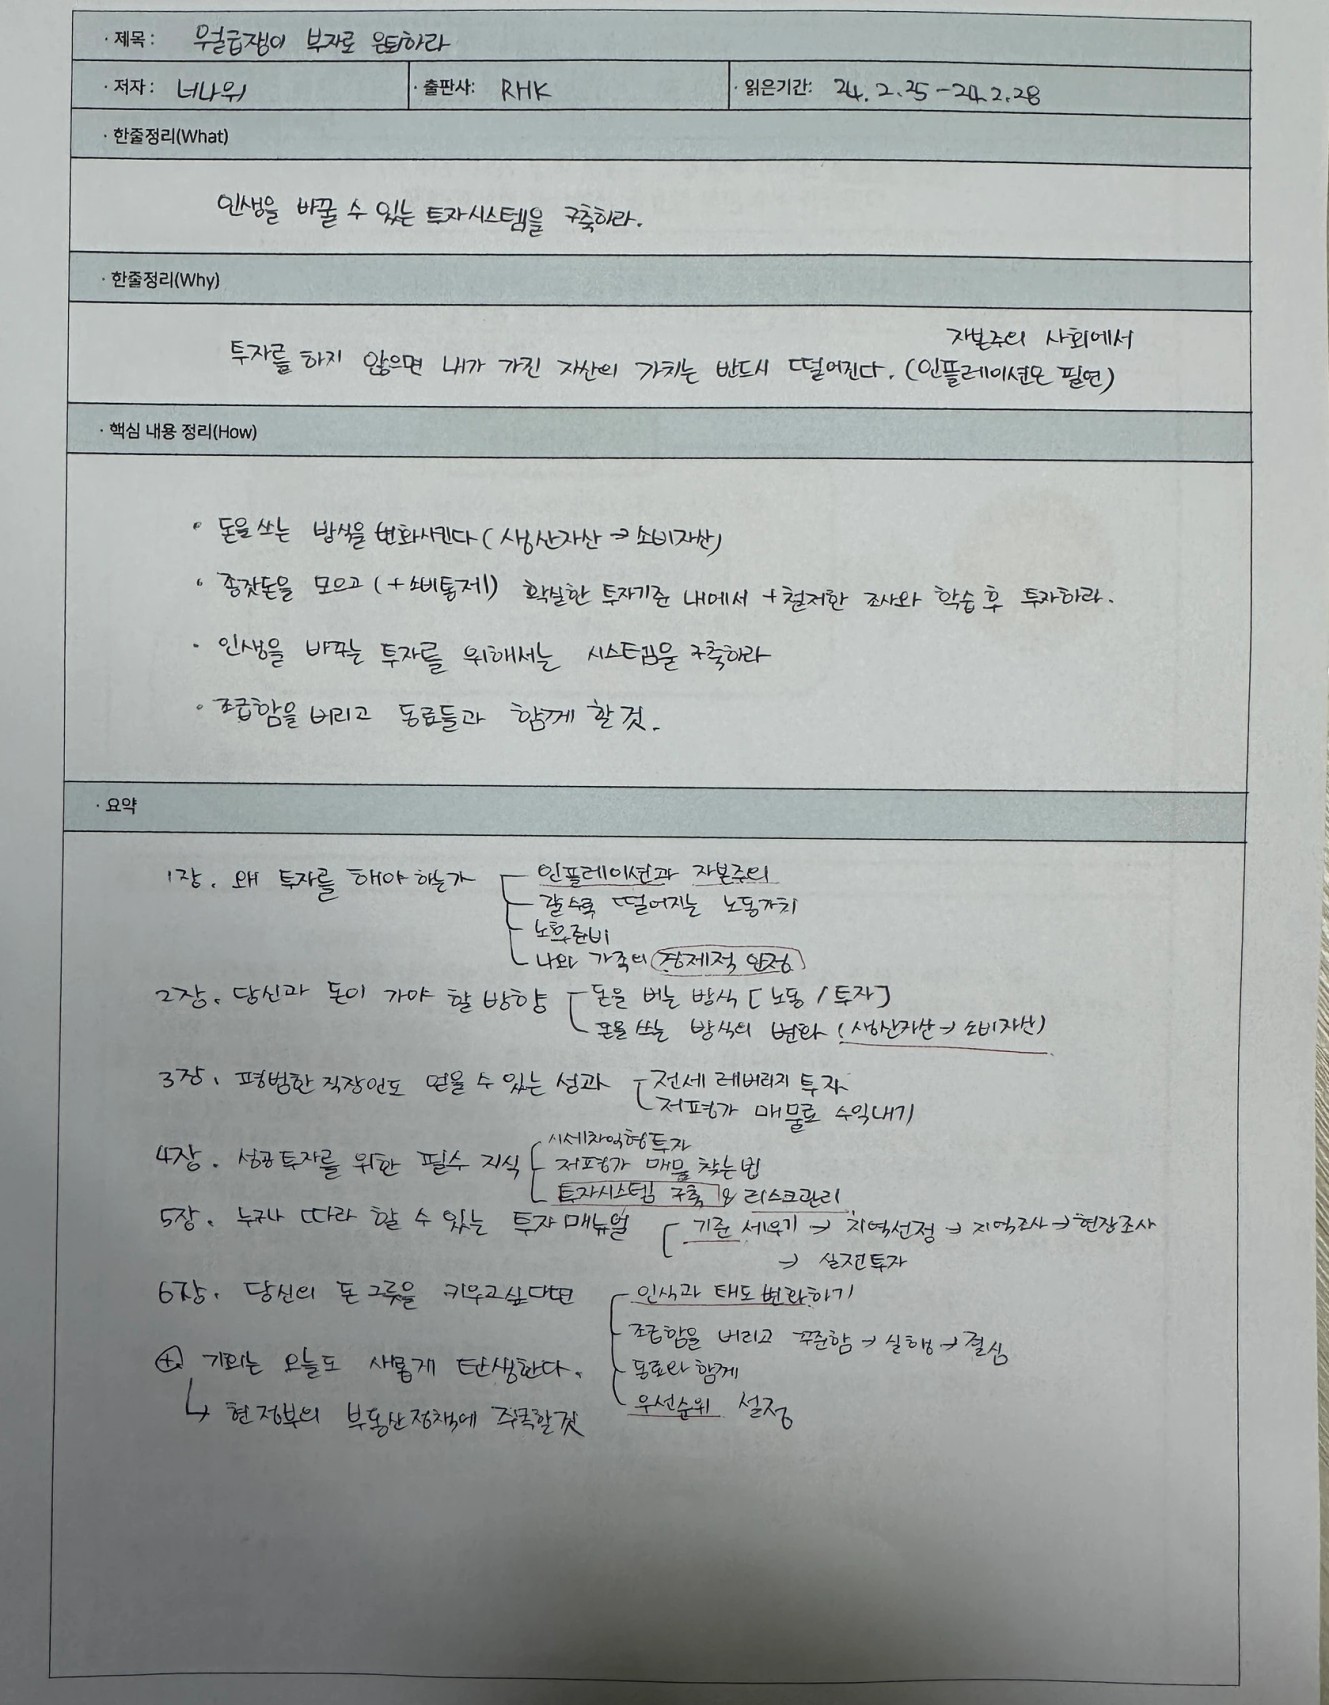 · 제목: 월급쟁이 부자로 은퇴하라
· 저자: 너나위 · 출판사: RHK · 읽은기간: 24. 2. 25 - 24. 2. 28
· 한줄정리(What)
인생을 바꿀 수 있는 투자시스템을 구축하라.
· 한줄정리(Why)
자본주의 사회에서
투자를 하지 않으면 내가 가진 자산의 가치는 반드시 떨어진다. (인플레이션은 필연)
· 핵심 내용 정리(How)
• 돈을 쓰는 방식을 변화시킨다 (생산자산 → 소비자산)
• 종잣돈을 모으고 (+소비통제) 확실한 투자기준 내에서 +철저한 조사와 학습 후 투자하라.
• 인생을 바꾸는 투자를 위해서는 시스템을 구축하라
• 조급함을 버리고 동료들과 함께 할 것.
· 요약
1장. 왜 투자를 해야 하는가
인플레이션과 자본주의
갈수록 떨어지는 노동가치
노후준비
나와 가족의 경제적 안정
2장. 당신과 돈이 가야 할 방향
돈을 버는 방식 [노동 / 투자]
돈을 쓰는 방식의 변화 (생산자산 → 소비자산)
3장. 평범한 직장인도 얻을 수 있는 성과
전세 레버리지 투자
저평가 매물로 수익내기
4장. 성공투자를 위한 필수 지식
시세차익형 투자
저평가 매물 찾는법
투자시스템 구축 & 리스크관리
5장. 누구나 따라 할 수 있는 투자 매뉴얼
기준 세우기 → 지역선정 → 지역조사 → 현장조사
→ 실전투자
6장. 당신의 돈 그릇을 키우고싶다면
인식과 태도 변화하기
조급함을 버리고 꾸준함 → 실행 → 결심
동료와 함께
우선순위 설정
⊕ 기회는 오늘도 새롭게 탄생한다.
↳ 현 정부의 부동산정책에 주목할것